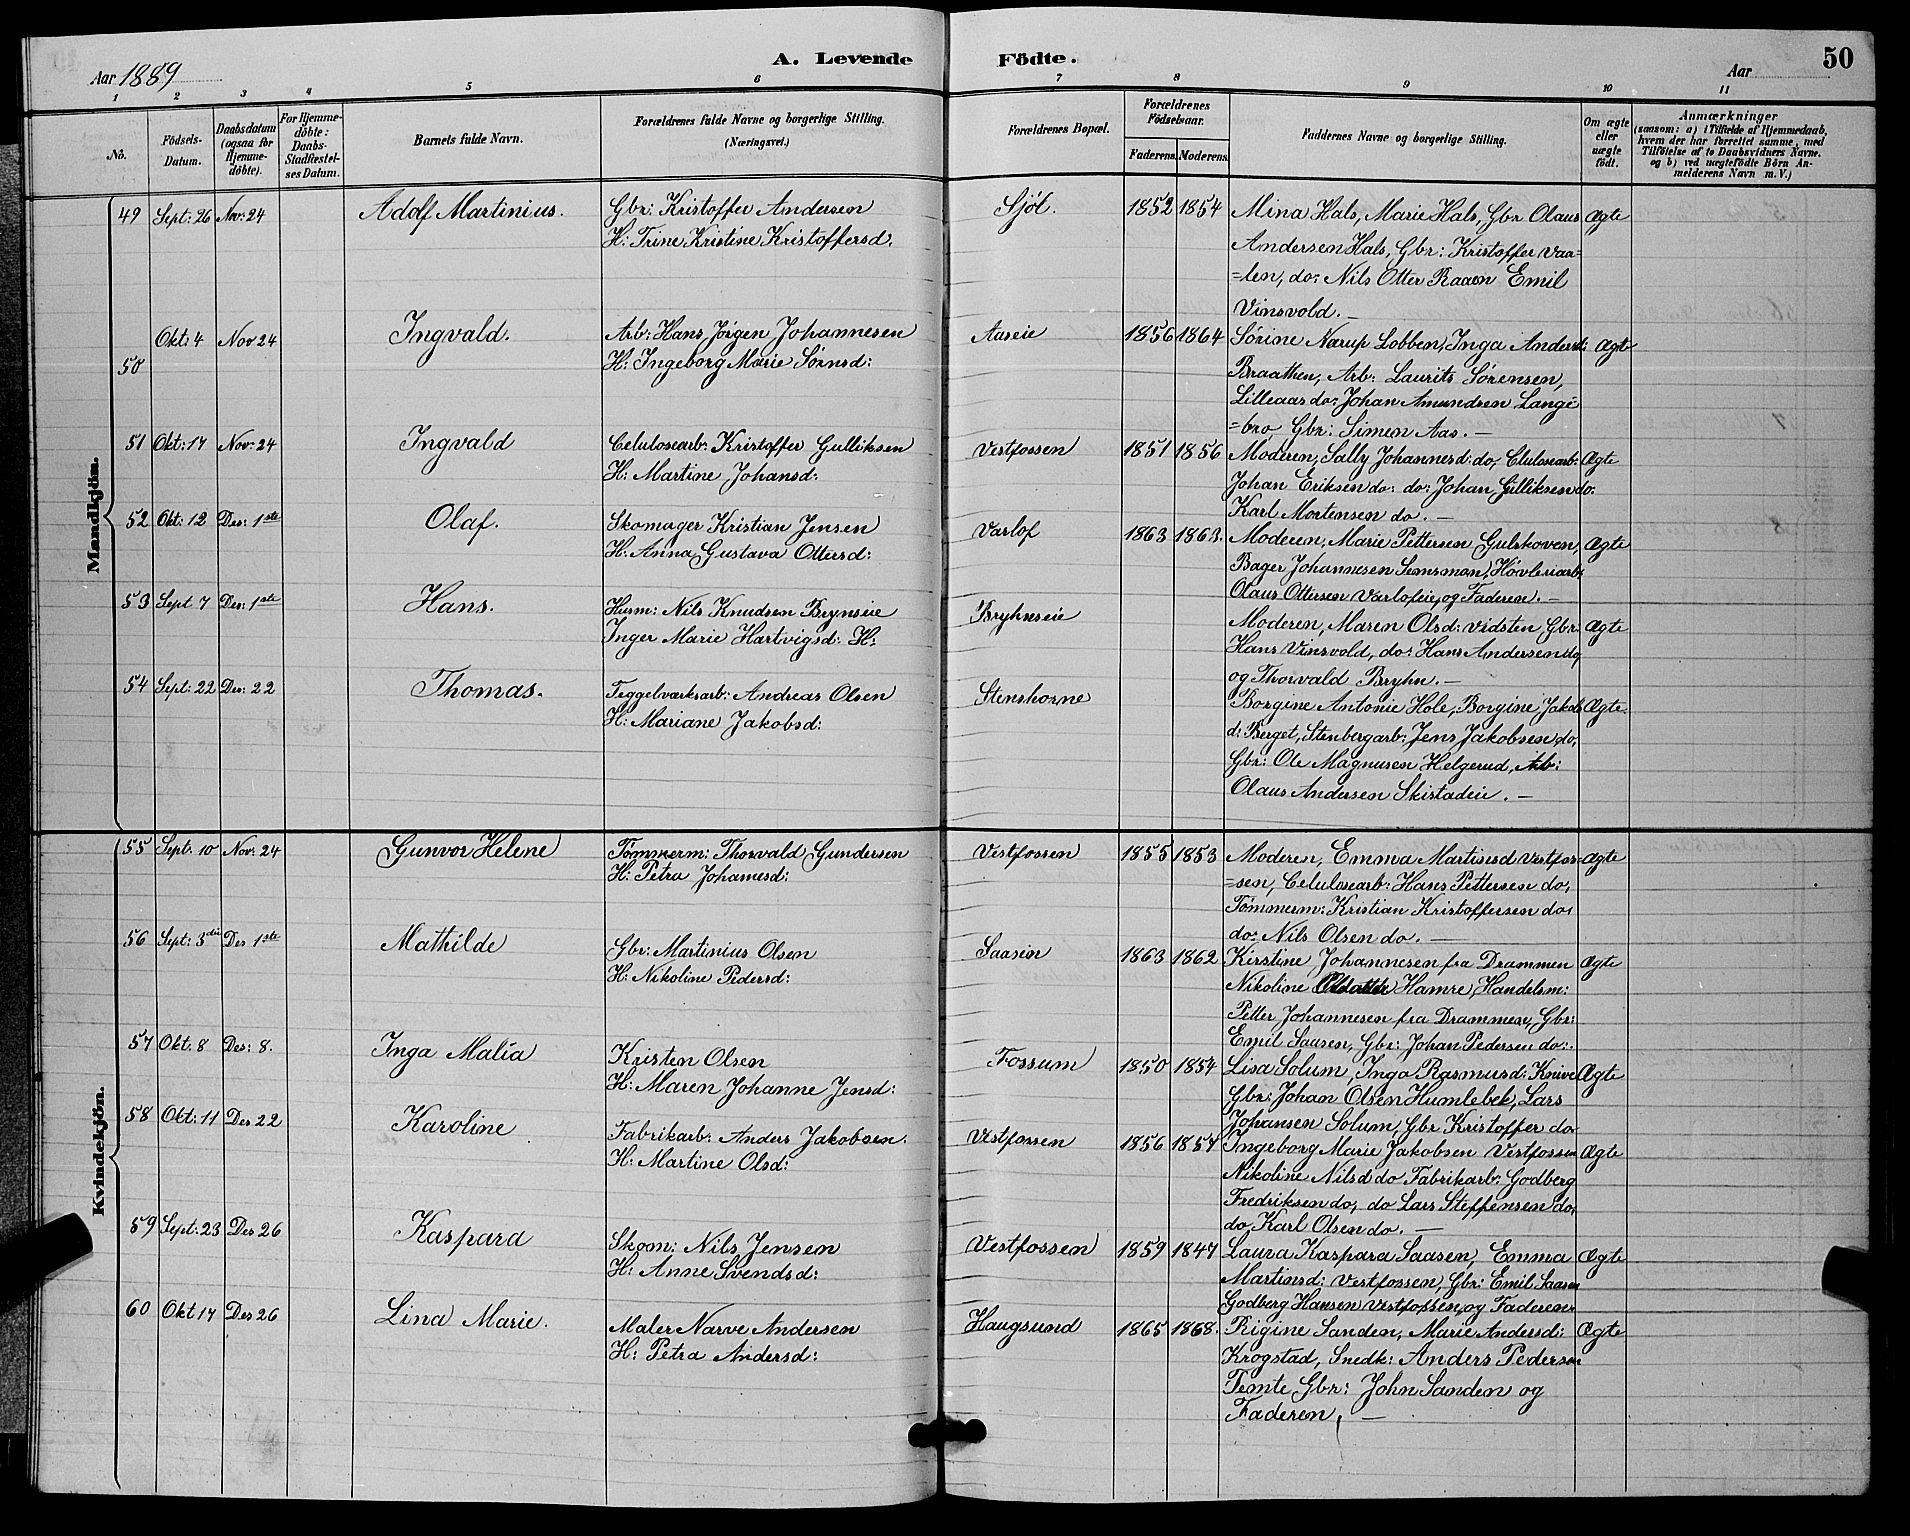 Aar 1889
A. Levende Födte.
Aar
50
1 2 3 4 5 6 7 8 9 10 11
No.
Födsels-Datum.
Daabsdatum (ogsaa for Hjemme-döbte).
For Hjemme-döbte: Daabs-Stadfæstel-ses Datum.
Barnets fulde Navn.
Forældrenes fulde Navne og borgerlige Stilling.
(Næringsvei.)
Forældrenes Bopæl.
Forældrenes Födselsaar.
Faderens. Moderens.
Faddernes Navne og borgerlige Stilling.
Om ægte eller uægte födt.
Anmærkninger
(saasom: a) i Tilfælde af Hjemmedaab,
hvem der har forrettet samme, med
Tilföielse af to Daabsvidners Navne.
og b) ved uægtefödte Börn An-
melderens Navn m. V.)
Mandkjön.
49 Sept: 26 Nov: 24 Adolf Martinius. Gbr: Kristoffer Andersen Sjöl. 1852 1854 Mina Hals, Marie Hals, Gbr Olaus Ægte
H: Trine Kristine Kristoffersd. Andersen Hals, Gbr: Kristoffer Vaa=
=len, do: Nils Otter Raaen Emil
Vinsvold. —
50 Okt: 4 Nov 24 Ingvald. Arb: Hans Jørgen Johannesen Aaseie 1856 1864 Sørine Narup Lobben, Inga Andersd: Ægte
H: Ingeborg Marie Sørnsd: Braathen, Arb: Laurits Sørensen,
Lilleaas do: Johan Amundsen Lange
=bro, Gbr: Simen Aas. —
51 Okt: 17 Nov: 24 Ingvald Celulosearb: Kristoffer Gulliksen Vestfossen 1851 1856 Moderen, Sally Johannesd: do, Clulosearb: Ægte
H: Martine Johansd: Johan Eriksen do: do: Johan Gulliksen do:
Karl Mortensen do. —
52 Okt: 12 Des: 1ste Olaf. Skomager Kristian Jensen Varlof 1863 1863. Moderen, Marie Pettersen Gulskoven, Ægte
H: Anna Gustava Ottersd: Bager Johannesen Semsmoen, Høvleriarb:
Olaus Ottersen Varlofeie, og Faderen. —
53 Sept 7 Des: 1ste Hans. Husm: Nils Knudsen Brynseie Bryhnseie Moderen, Maren Olsd: Vidsten Gbr: Ægte
Inger Marie Hartvigsd: H: Hans Vinsvold, do: Hans Andersen do,
og Thorvald Bryhn. —
54 Sept: 22 Des: 22 Thomas. Teggelværksarb: Andreas Olsen Stenshorne Borgine Antonie Hole, Borgine Jakobs Ægte.
H: Mariane Jakobsd: d: Berget, Stenbergarb: Jens Jakobsen do,
Gbr: Ole Magnusen Helgerud, Arb:
Olaus Andersen Skistadeie. —
Kvindekjön.
55 Sept: 10 Nov: 24 Gunvor Helene Tømmerm: Thorvald Gundersen Vestfossen 1855 1853 Moderen, Emma Martinsd Vestfos= Ægte
H: Petra Johanesd: =sen, Celulosearb: Hans Pettersen do,
Tømmerm: Kristian Kristoffersen do:
do: Nils Olsen do. —
56 Sept: 3die Des 1ste Mathilde Gbr: Martinius Olsen Saasen 1863 1862 Kirstine Johannesen fra Drammen Ægte
H: Nikoline Pedersd: Nikoline Hamre, Handelsm:
Petter Johannesen fra Drammen, Gbr:
Emil Saasen, Gbr: Johan Pedersen do:.
57 Okt. 8 Des: 8. Inga Malia Kristen Olsen Fossum 1850 1854 Lisa Solum, Inga Rasmusd: Knive Ægte
H: Maren Johanne Jensd: Gbr: Johan Olsen Humlebek, Lars
Johansen Solum, Gbr Kristoffer do.
58 Okt: 11 Des 22 Karoline Fabrikarb: Anders Jakobsen. Vestfossen 1856 1857 Ingeborg Marie Jakobsen Vestfossen Ægte
H: Martine Olsd: Nikoline Nilsd do Fabrikarb: Godberg
Fredriksen do, do Lars Steffensen do,
do Karl Olsen do. —
59 Sept: 23 Des 26 Kaspara Skom: Nils Jensen Vestfossen 1859 1847 Laura Kaspara Saasen, Emma Ægte
H: Anne Svendsd: Martinsd: Vestfossen, Gbr: Emil Saasen
Godberg Hansen Vestfossen, og Faderen
60 Okt 17 Des 26 Lina Marie. Maler Narve Andersen Haugsund 1865 1868. Rigine Sanden, Marie Andersd: Ægte
H: Petra Andersd: Krogstad, Snedk: Anders Pedersen
Temte Gbr: John Sanden og
Faderen, —